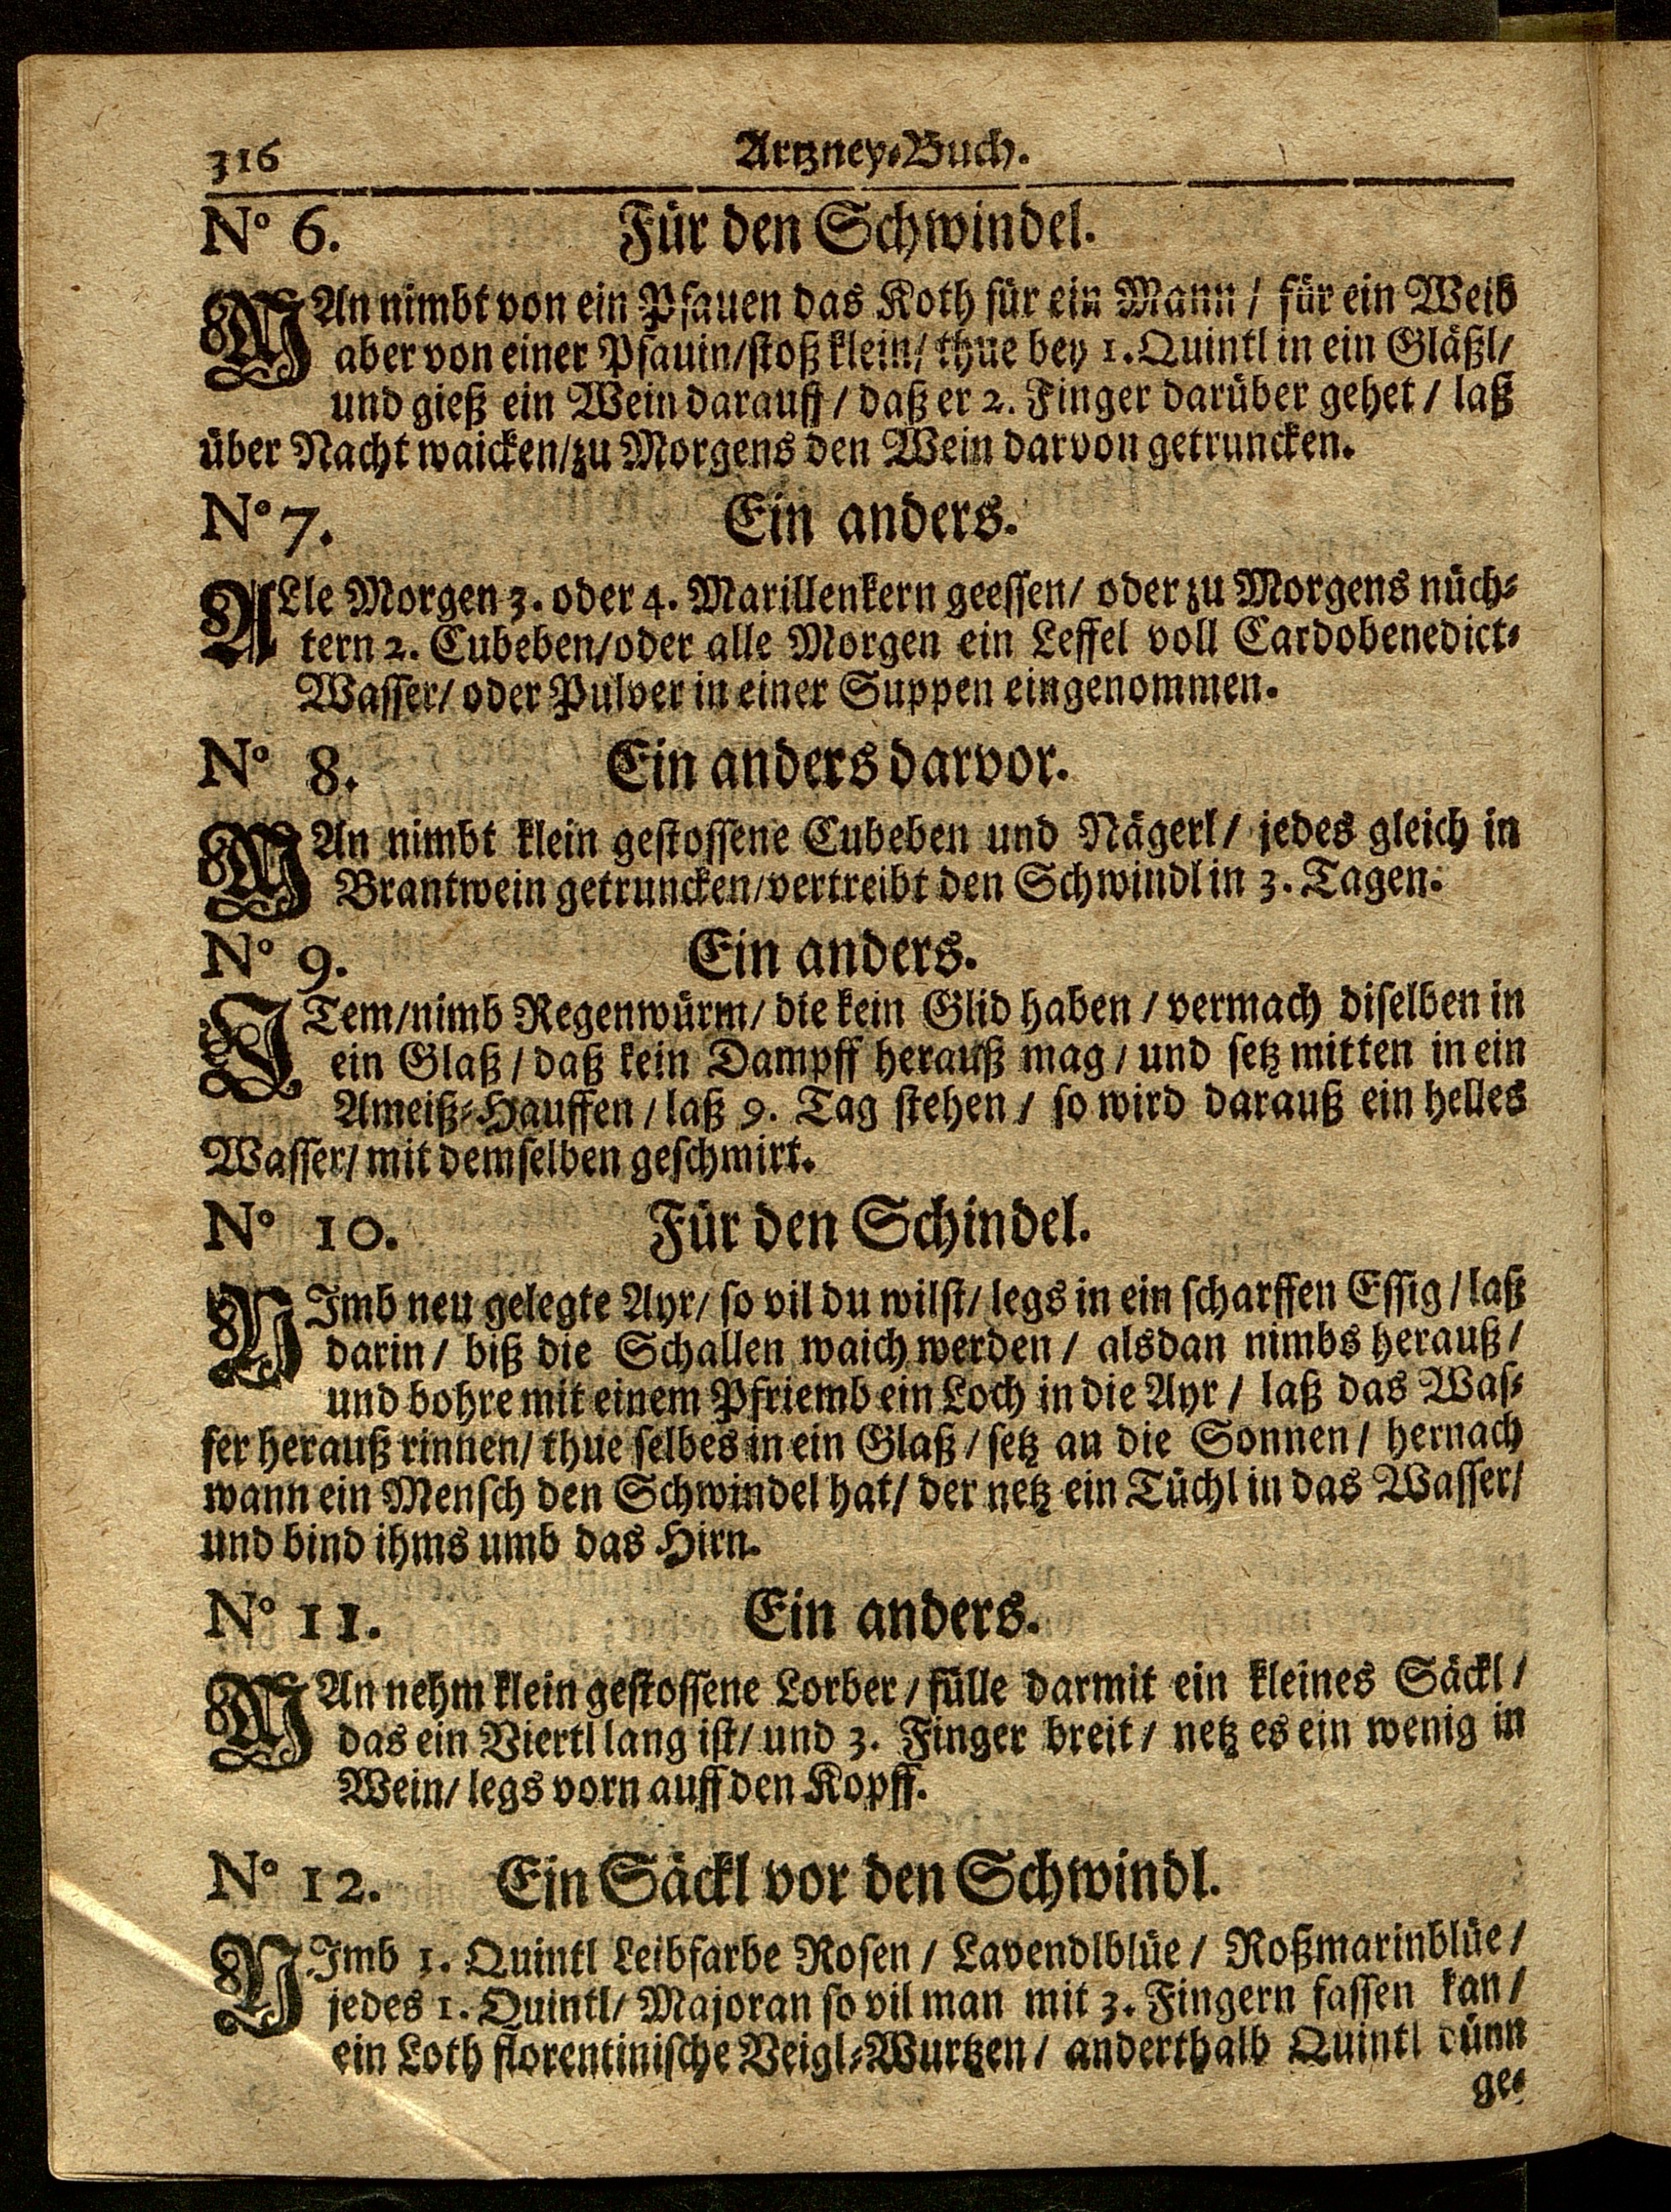 316 Artzney-Buch.
No 6. Für den Schwindel.
MAn nimbt von ein Pfauen das Koth für ein Mann / für ein Weib
aber von einer Pfauin/stoß klein/ thue bey 1. Quintl in ein Gläßl/
und gieß ein Wein darauff / daß er 2. Finger darüber gehet / laß
über Nacht waicken/zu Morgens den Wein darvon getruncken.
No 7. Ein anders.
ALle Morgen 3. oder 4. Marillenkern geessen/ oder zu Morgens nüch-
tern 2. Cubeben/oder alle Morgen ein Leffel voll Cardobenedict-
Wasser/ oder Pulver in einer Suppen eingenommen.
No 8. Ein anders darvor.
MAn nimbt klein gestossene Cubeben und Nägerl/ jedes gleich in
Brantwein getruncken/vertreibt den Schwindl in 3. Tagen.
No 9. Ein anders.
ITem/nimb Regenwürm/ die kein Glid haben / vermach diselben in
ein Glaß / daß kein Dampff herauß mag / und setz mitten in ein
Ameiß-Hauffen / laß 9. Tag stehen / so wird darauß ein helles
Wasser/ mit demselben geschmirt.
No 10. Für den Schindel.
NImb neu gelegte Ayr/ so vil du wilst/ legs in ein scharffen Essig / laß
darin / biß die Schallen waich werden / alsdan nimbs herauß /
und bohre mit einem Pfriemb ein Loch in die Ayr / laß das Was-
ser herauß rinnen/ thue selbes in ein Glaß / setz an die Sonnen / hernach
wann ein Mensch den Schwindel hat/ der netz ein Tüchl in das Wasser/
und bind ihms umb das Hirn.
No 11. Ein anders.
MAn nehm klein gestossene Lorber / fülle darmit ein kleines Säckl /
das ein Viertl lang ist/ und 3. Finger breit / netz es ein wenig in
Wein/ legs vorn auff den Kopff.
No 12. Ein Säckl vor den Schwindl.
NImb 1. Quintl Leibfarbe Rosen / Lavendlblüe / Roßmarinblüe /
jedes 1. Quintl/ Majoran so vil man mit 3. Fingern fassen kan /
ein Loth florentinische Veigl-Wurtzen / anderthalb Quintl dünn
ge-